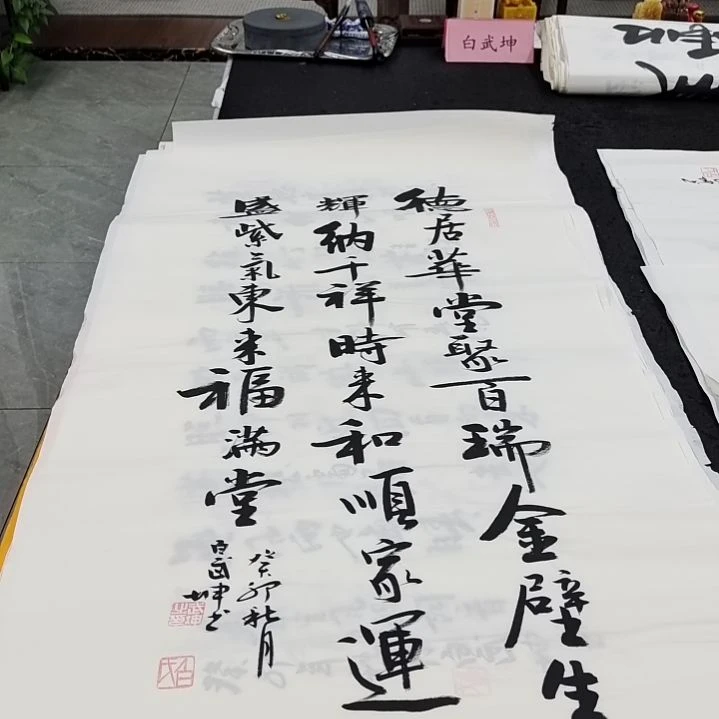 白武坤
德居華堂聚百瑞金壁生
輝納千祥時来和順家運
盛紫氣東来福满堂
癸卯秋月
白武坤书